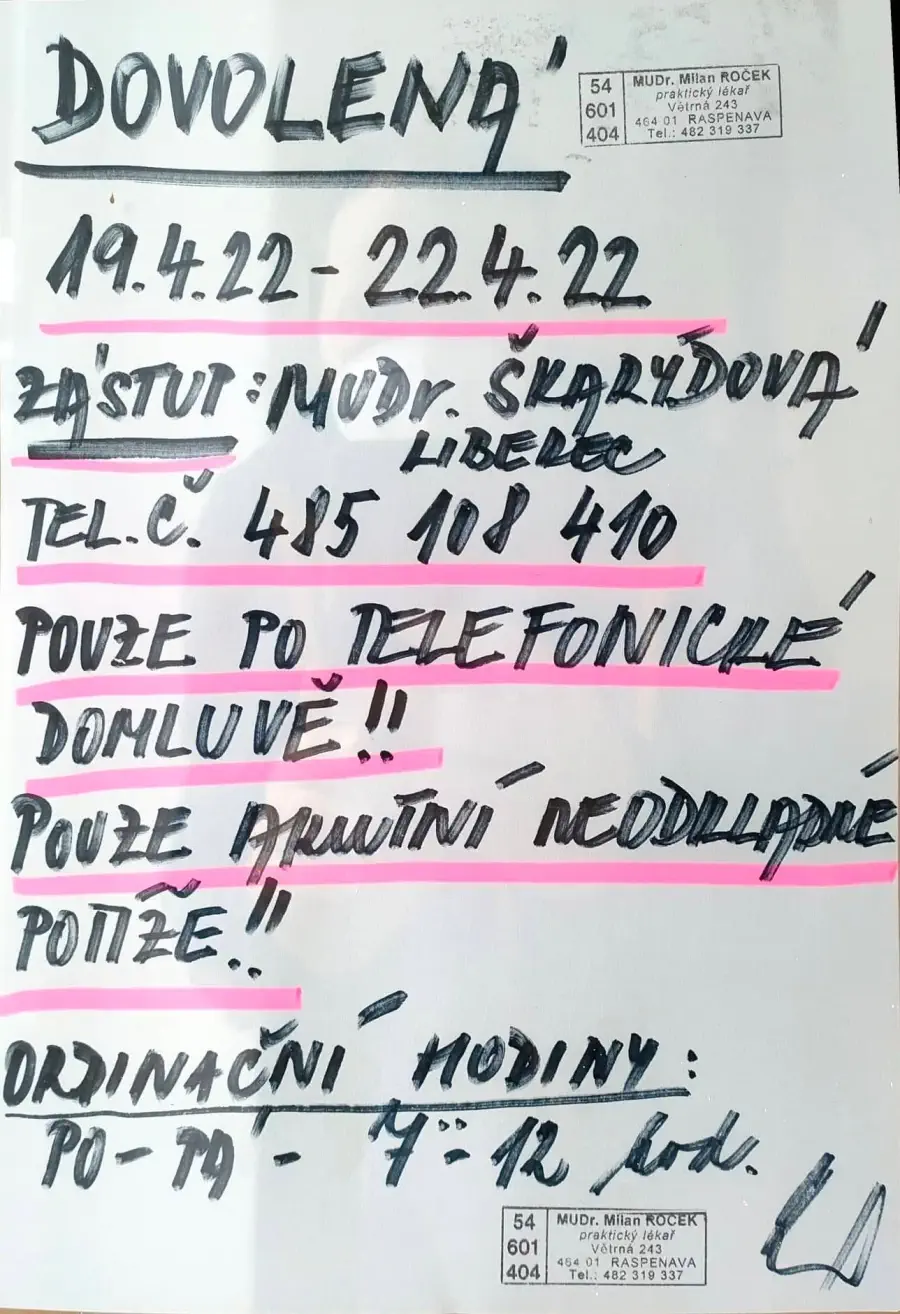 DOVOLENÁ
54 601 404
MUDr. Milan ROČEK
praktický lékař
Větrná 243
464 01 RASPENAVA
Tel.: 482 319 337
19.4.22 - 22.4.22
ZÁSTUP: MUDr. ŠKARÝDOVÁ
LIBEREC
TEL.Č. 485 108 410
POUZE PO TELEFONICKÉ
DOMLUVĚ!!
POUZE AKUTNÍ NEODKLADNÉ
POTÍŽE!!
ORDINAČNÍ HODINY:
PO - PÁ - 7 - 12 hod.
54 601 404
MUDr. Milan ROČEK
praktický lékař
Větrná 243
464 01 RASPENAVA
Tel.: 482 319 337